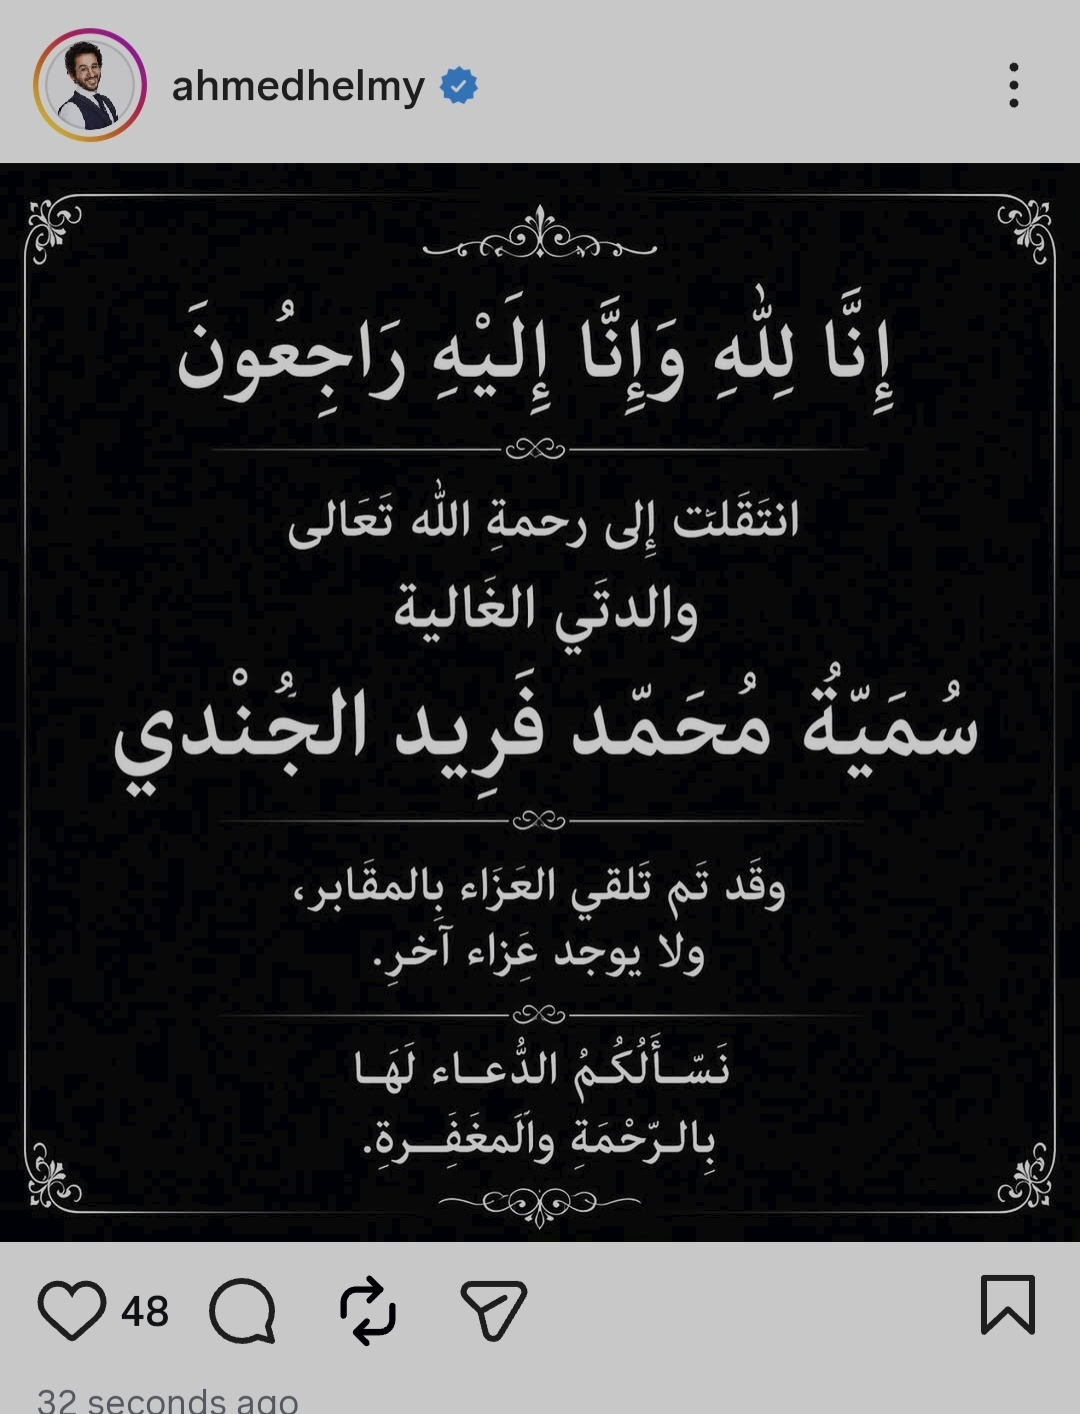 ahmedhelmy
إِنَّا لِلَّهِ وَإِنَّا إِلَيْهِ رَاجِعُونَ
انتَقَلت إِلى رحمةِ الله تَعَالى
والدتَي الغَالية
سُمَيّةُ مُحَمّد فَرِيد الجُنْدي
وقَد تَم تَلقي العَزَاء بِالمقَابر،
ولا يوجد عَزِاء آخرِ.
نَسّـأَلُكُـمُ الدُّعـاء لَهَـا
بِالـرّحْمَةِ والَمغَفَِـرةِ.
48
32 seconds ago